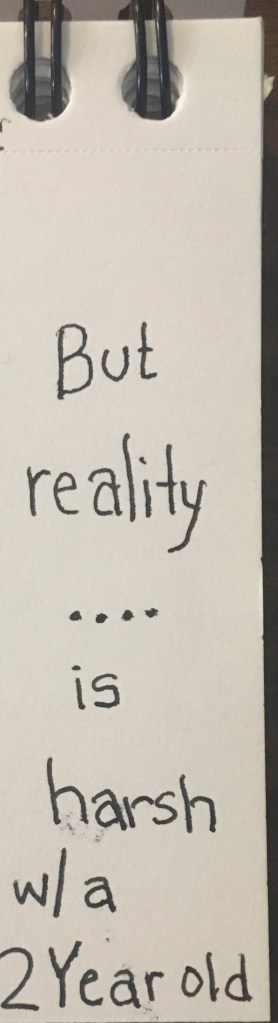 But
reality
....
is
harsh
w/a
2 Year old